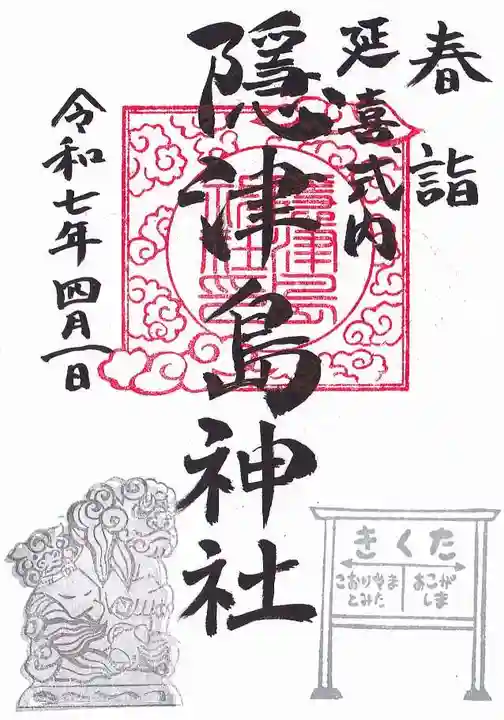 春詣
延喜式内
隠津島神社
令和七年四月一日
きくた
こおりやま
とみた
おこが
しま